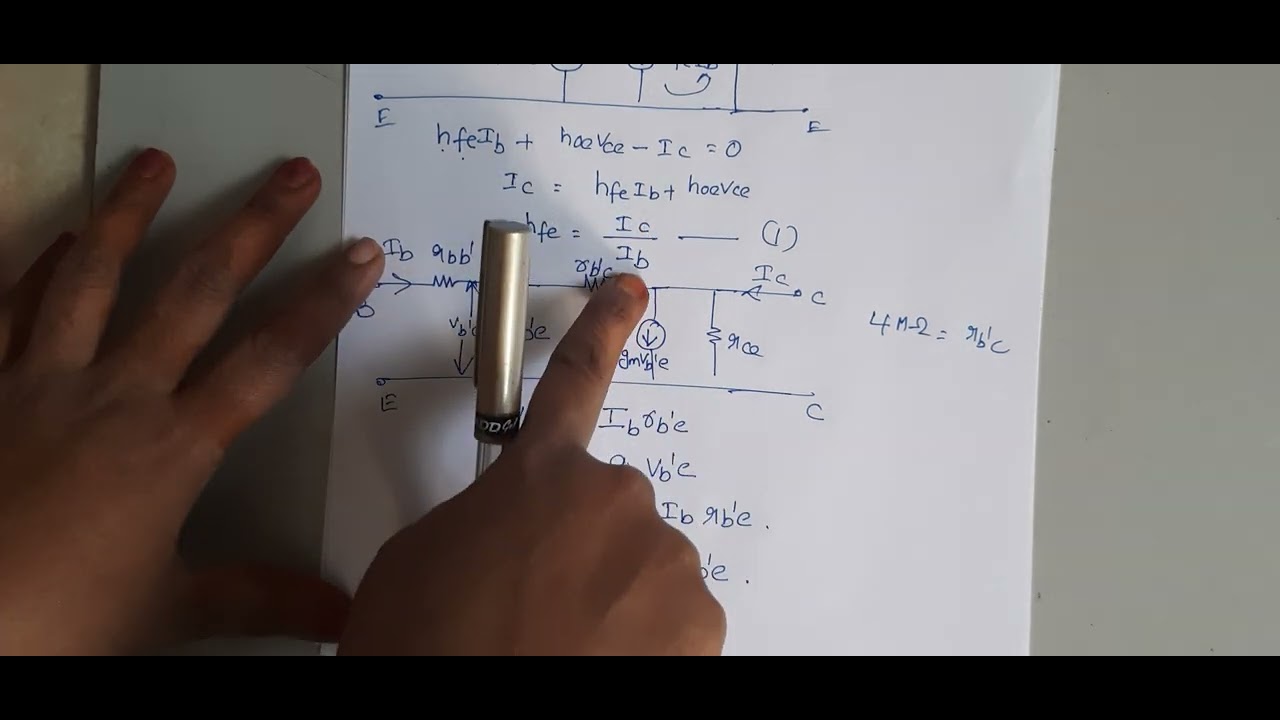 E E
hfeIb + hoeVce - Ic = 0
Ic = hfeIb + hoeVce
hfe = Ic / Ib — (1)
Ib rbb' rb'c Ic
C
4 MΩ = rb'c
b'e gmVb'e rce
E C
Ib rb'e
Vb'e
Ib rb'e .
b'e .